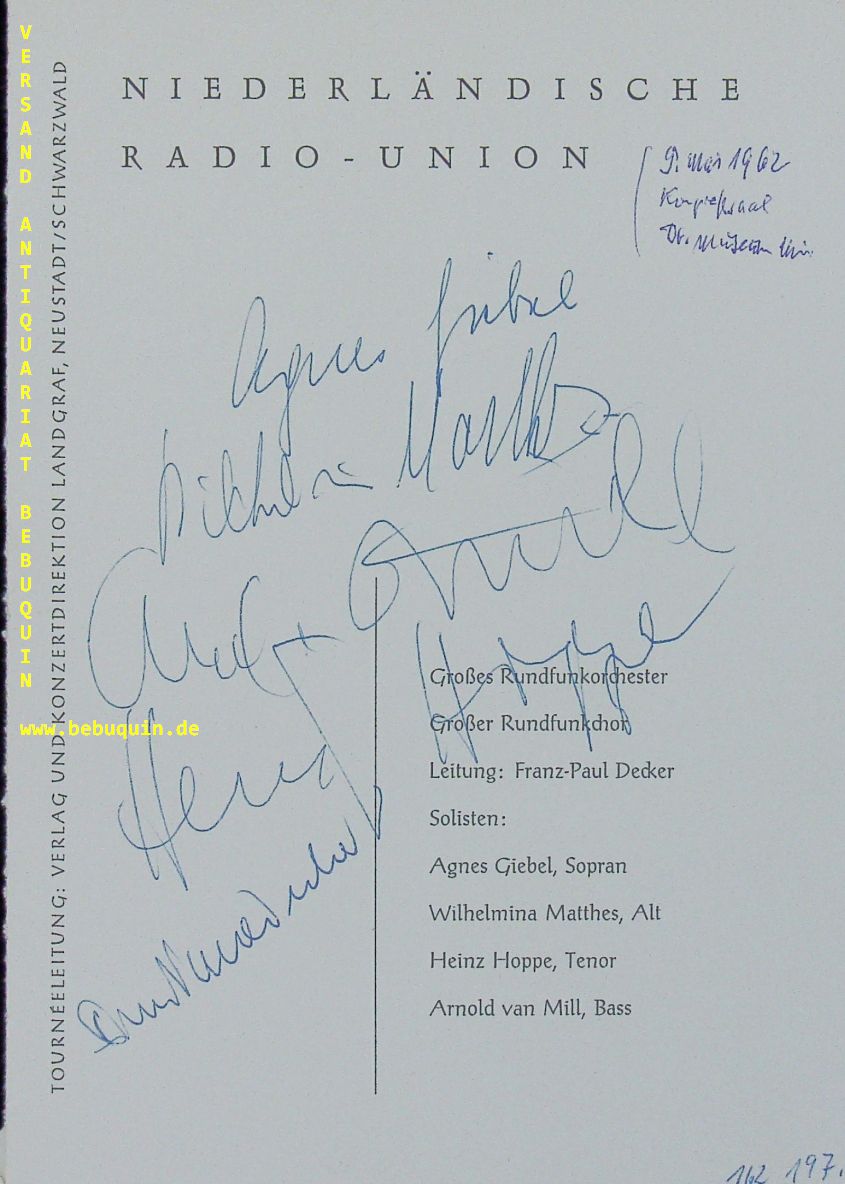 NIEDERLÄNDISCHE
RADIO-UNION
9. Mai 1962
Kongreßsaal
Dt. Museum
Agnes Giebel
Wilhelmina Matthes
Arnold van Mill
Heinz Hoppe
Großes Rundfunkorchester
Großer Rundfunkchor
Leitung: Franz-Paul Decker
Solisten:
Agnes Giebel, Sopran
Wilhelmina Matthes, Alt
Heinz Hoppe, Tenor
Arnold van Mill, Bass
162 197.
TOURNÉELEITUNG: VERLAG UND KONZERTDIREKTION LANDGRAF, NEUSTADT/SCHWARZWALD
VERSAND ANTIQUARIAT BEBUQUIN
www.bebuquin.de